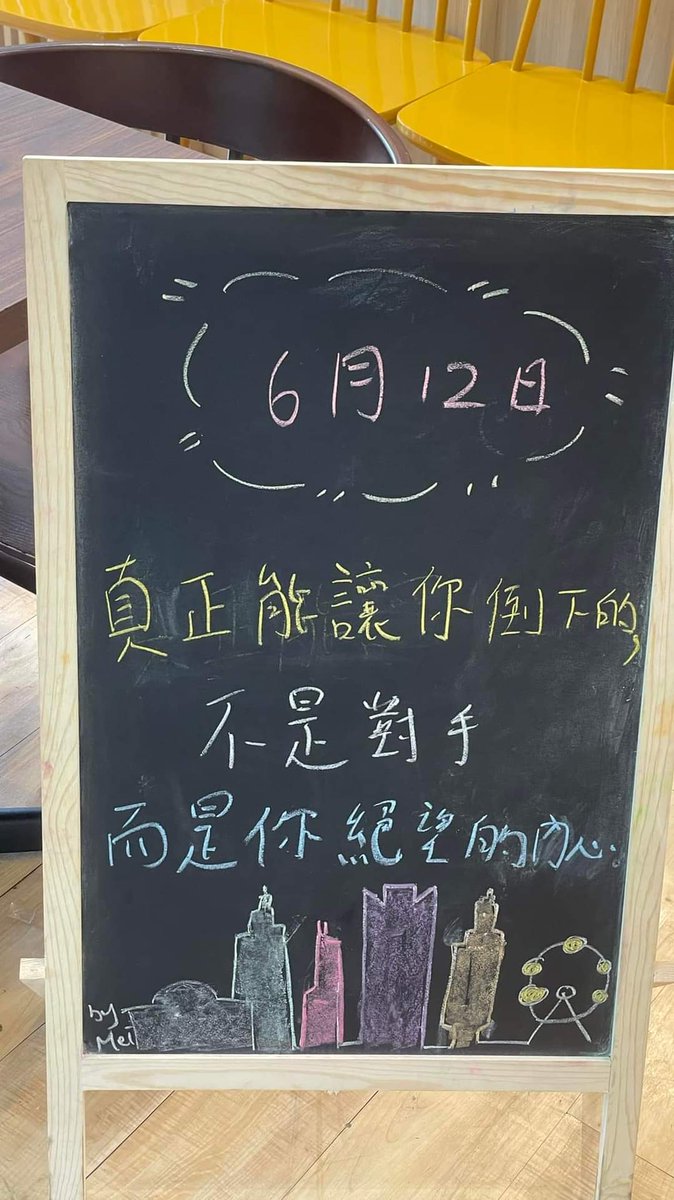 6月12日
真正能讓你倒下的,
不是對手
而是你絕望的內心.
by
Mei